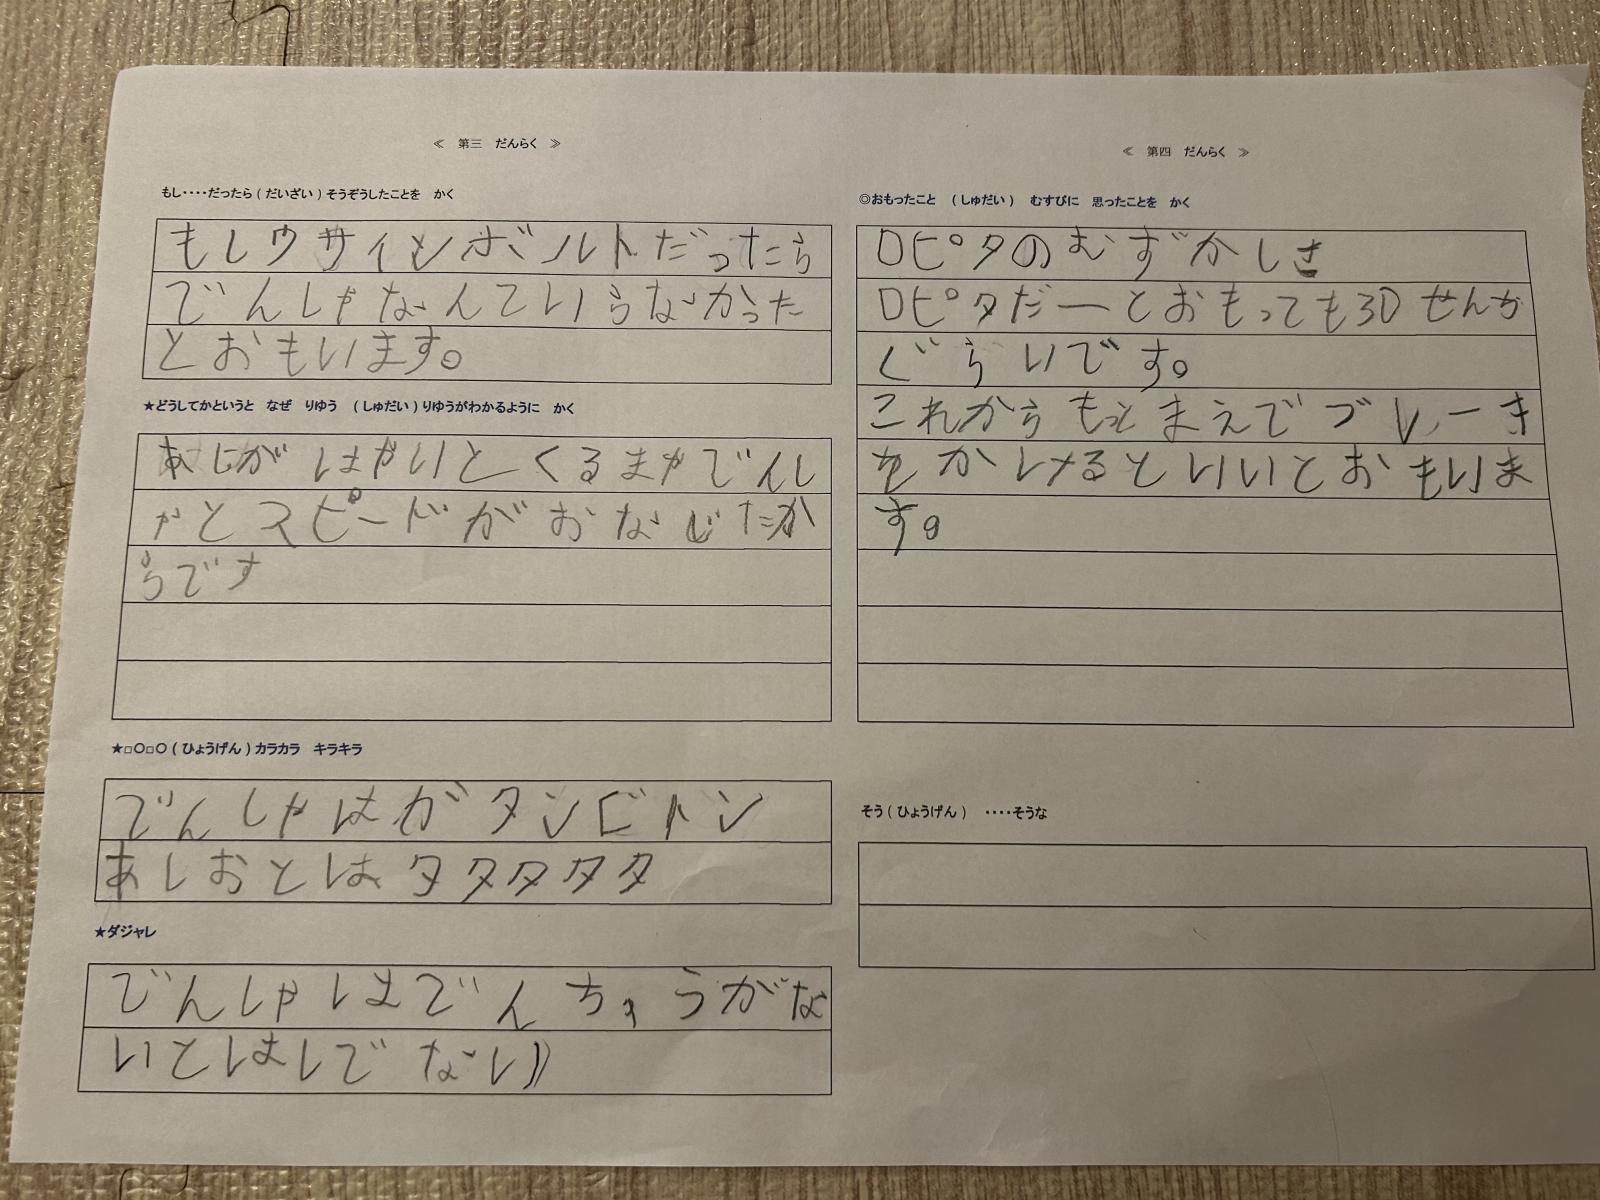 ≪ 第三 だんらく ≫
もし‥‥だったら(だいざい)そうぞうしたことを かく
もしウサインボルトだったら
でんしゃなんていらなかった
とおもいます。
★どうしてかというと なぜ りゆう (しゅだい)りゆうがわかるように かく
あしがはやいとくるまやでんし
ゃとスピードがおなじだか
らです
★□○□○(ひょうげん)カラカラ キラキラ
でんしゃはガタンゴトン
あしおとはタタタタタ
★ダジャレ
でんしゃはでんちゅうがな
いとはしでない
≪ 第四 だんらく ≫
◎おもったこと (しゅだい) むすびに 思ったことを かく
ロピタのむずかしさ
ロピタだーとおもっても30せんち
ぐらいです。
これからもっとまえでブレーキ
をかけるといいとおもいま
す。
そう(ひょうげん) ‥‥そうな